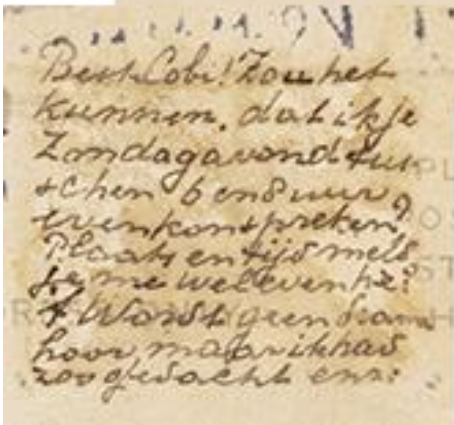 Beste Cobi! Zou het
kunnen, dat ik je
Zondagavond tus-
schen 6 en 8 uur
even kon spreken?
Plaats en tijd meld
je me wel even hè?
't Wordt geen
hoor, maar ik had
zoo gedacht enz: